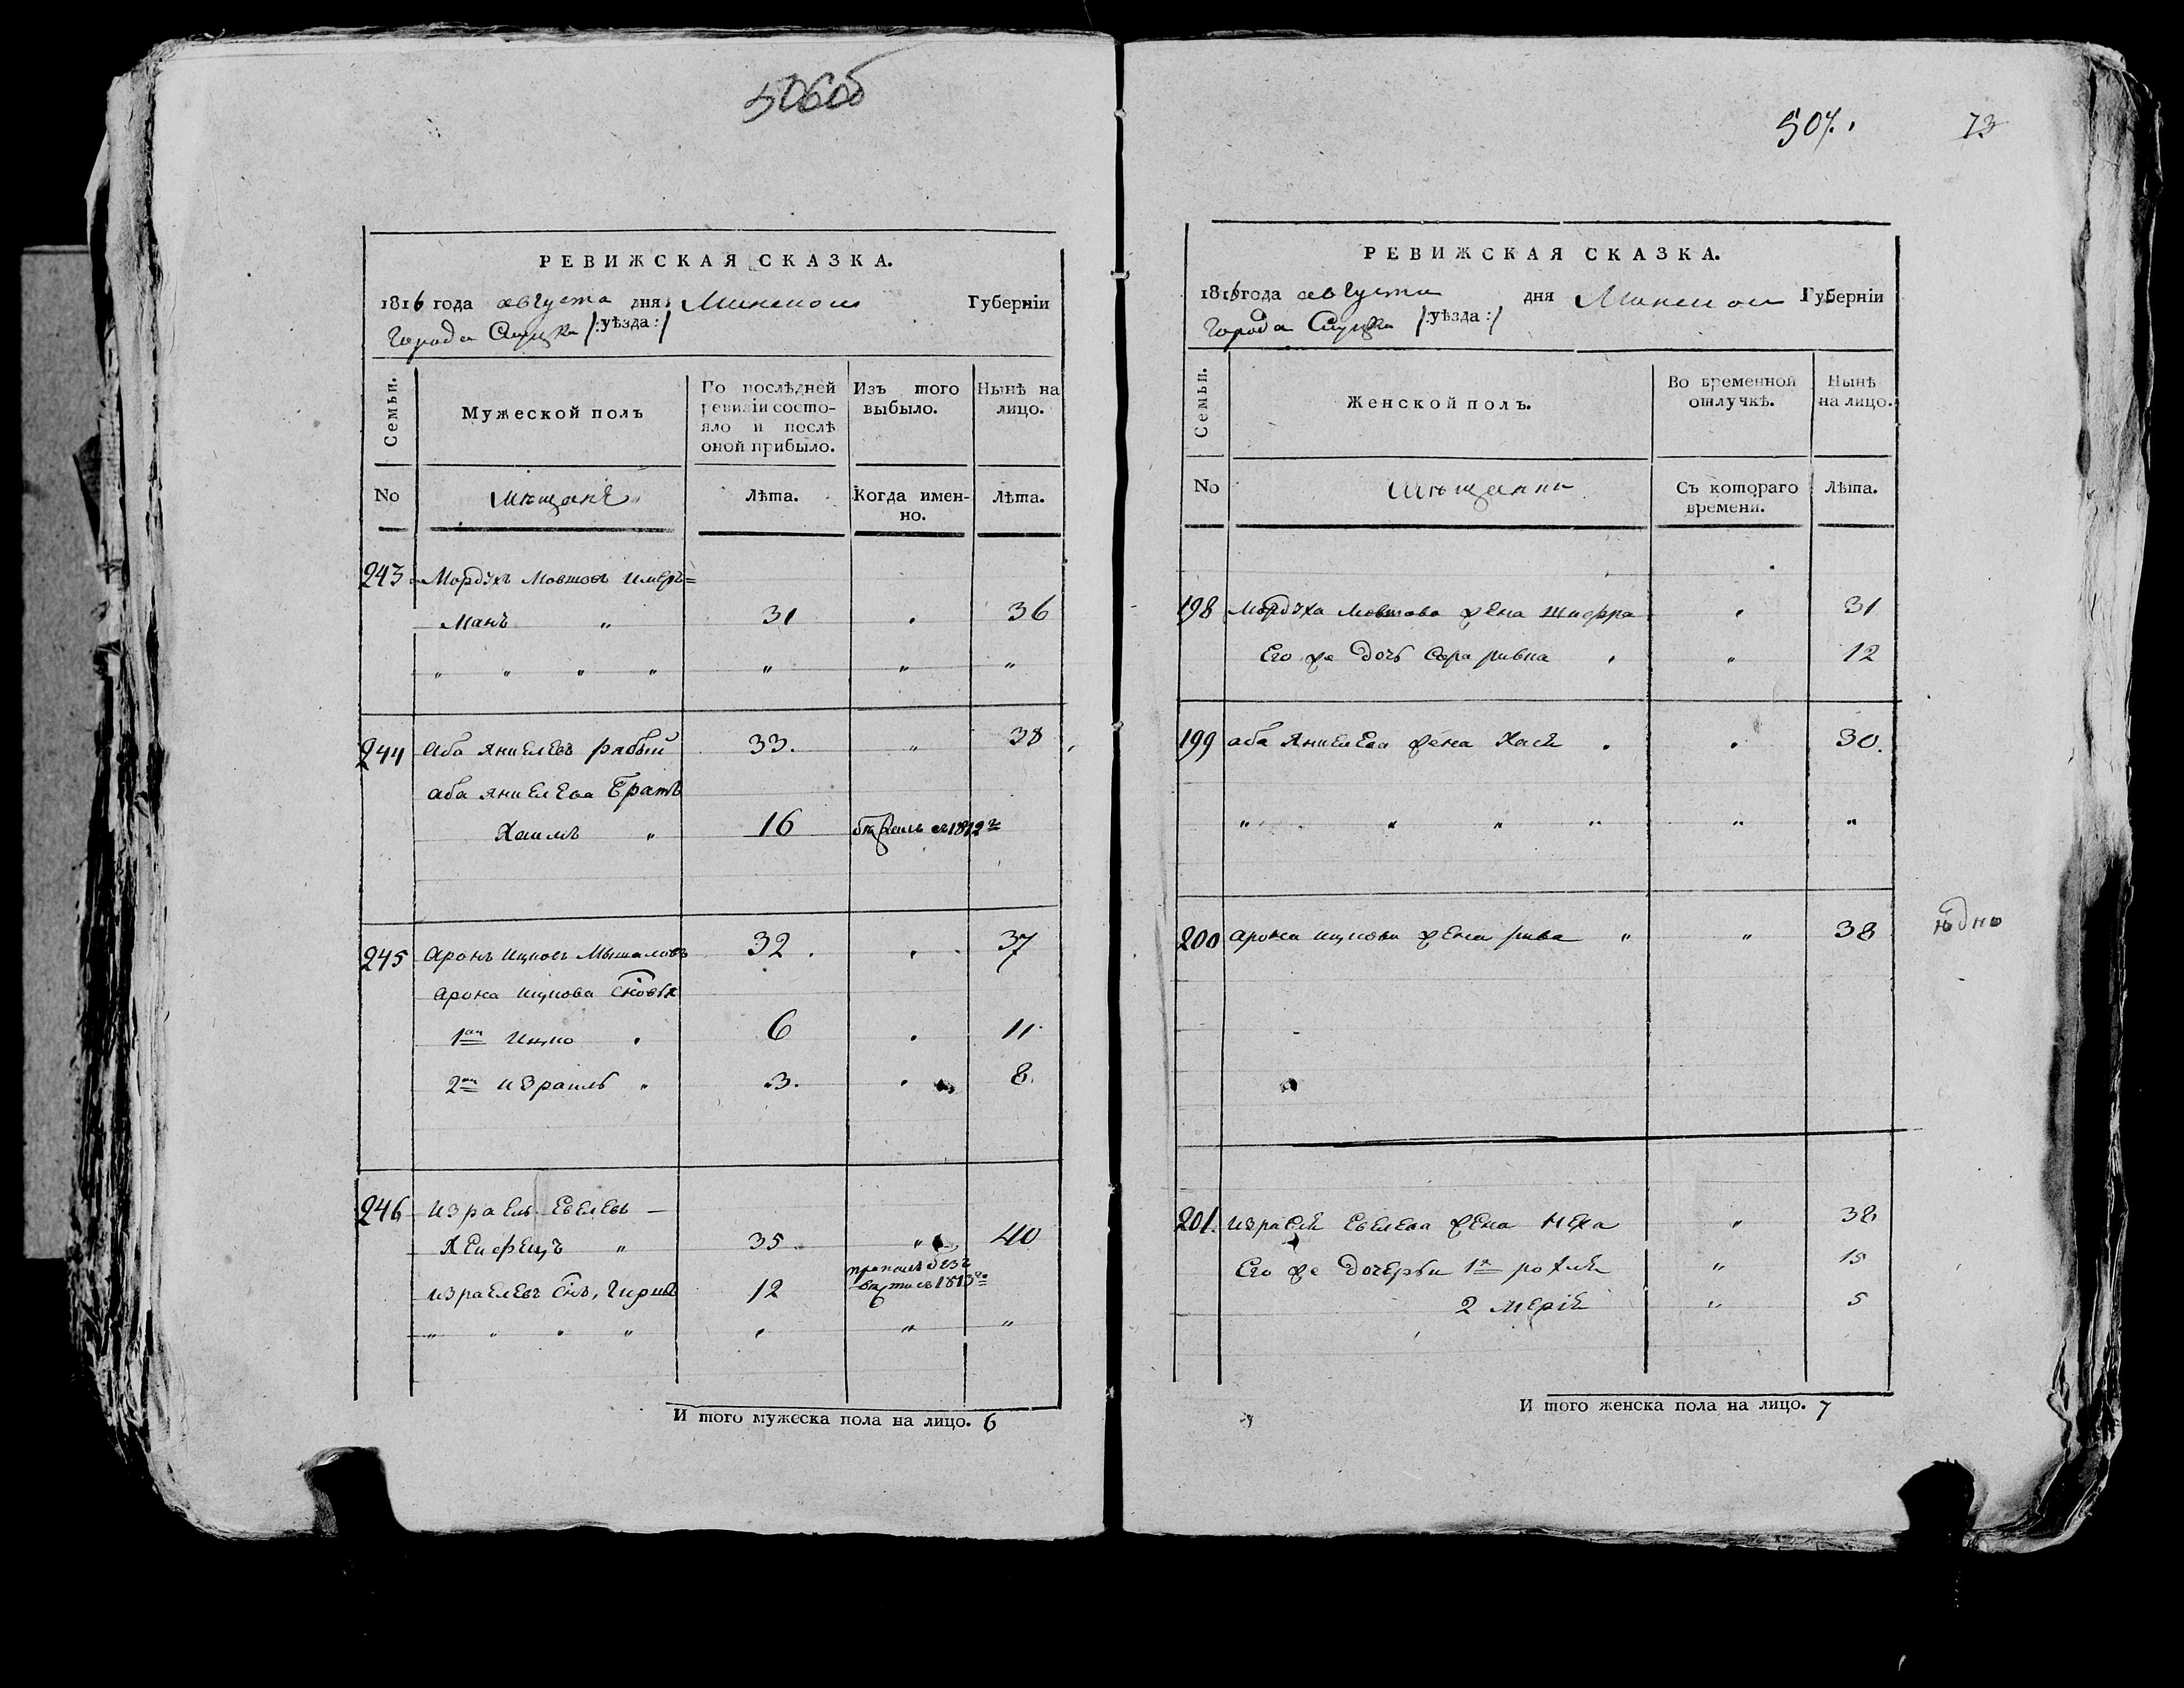 506об
РЕВИЖСКАЯ СКАЗКА.
1816 года августа дня Минской Губерніи
города Слуцка /:уѣзда:/
Семьи.
Мужеской полъ
По послѣдней ревизіи состо-
яло и послѣ
оной прибыло.
Изъ того
выбыло.
Нынѣ на
лицо.
No
мѣщане
Лѣта.
Когда имен-
но.
Лѣта.
243 Мордухъ Мовшовъ Имер=
манъ " 31 36
" " " " " " "
244 Аба Янкелевъ рабый 33. " 38
аба Янкелева братъ
Хаимъ " 16 1812го
245 Аронъ Ицковъ Мышаловъ 32. 37
Арона Ицкова сновья
1ой Ицко 6 11
2ой Израиль " 3. 8.
246 Израель Евелевъ —
Хейфецъ " 35 " 40
пропалъ безъ
Израелевъ снъ, Гиршъ 12 вѣсти съ 1813го
" " " " " " "
И того мужеска пола на лицо. 6
507. 73
РЕВИЖСКАЯ СКАЗКА.
1816 года августа дня Минской Губерніи
города Слуцка /:уѣзда:/
Семьи.
Женской полъ.
Во временной
отлучкѣ.
Нынѣ
на лицо.
No
мѣщанки
Съ котораго
времени.
Лѣта.
198 Мордуха Мовшова жена Шифра 31
Его же дочь Сора ривка " 12
199 аба Янкелева жена Хася 30.
" " " " " "
200 Арона Ицкова жена рива " " 38
ѣдно
201. Израеля Евелева жена Неха " 38
Его же дочерьи 1я рохля " 15
2 Мерія " 5
И того женска пола на лицо. 7